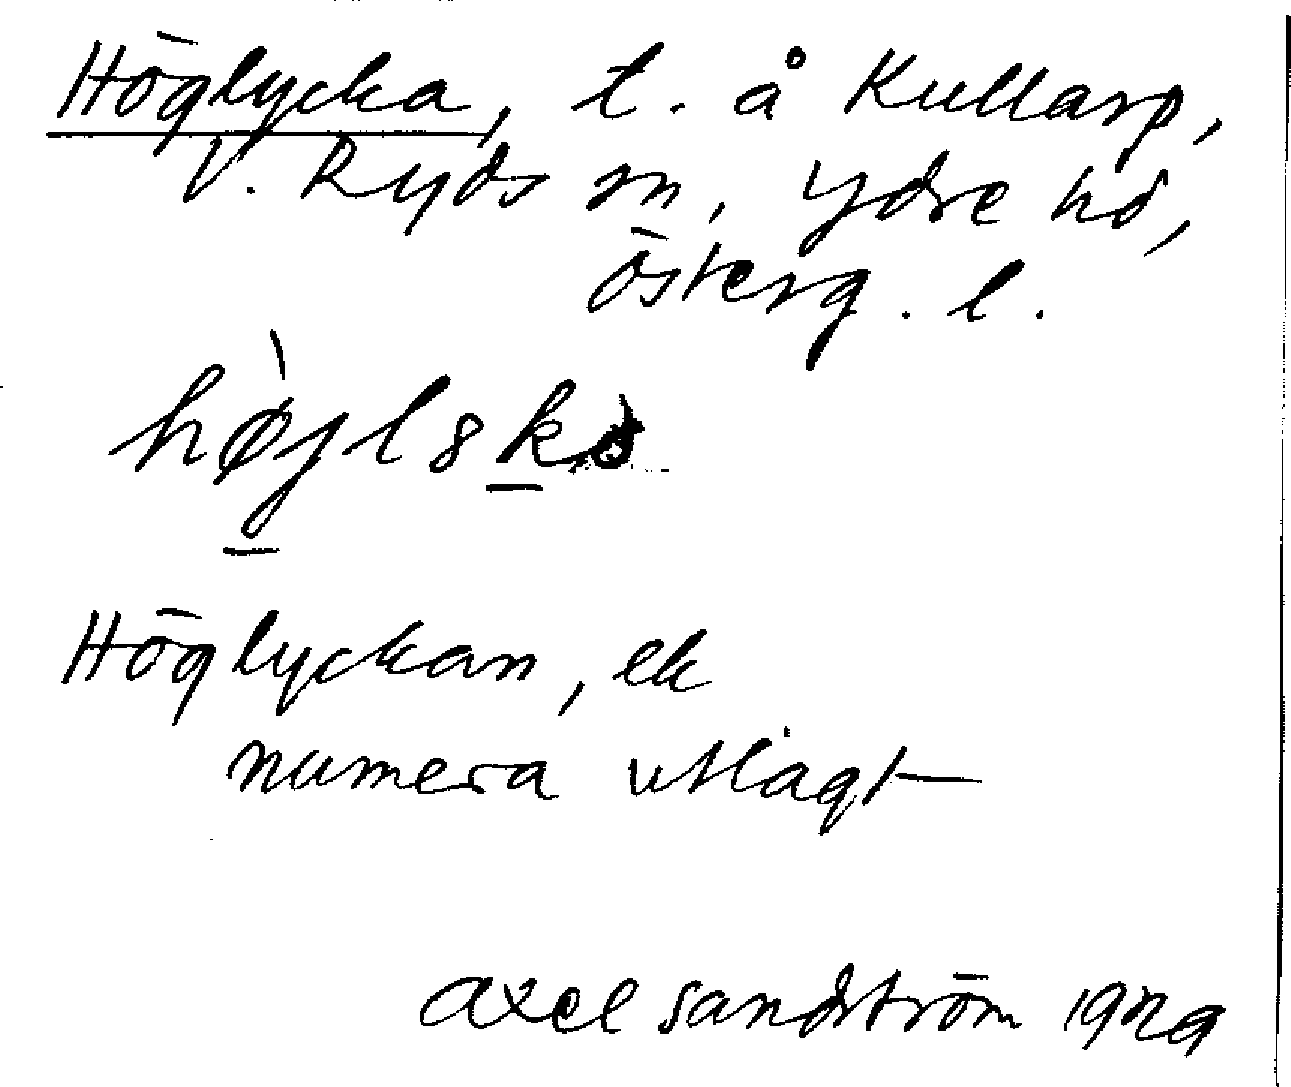 Höglycka, t. å Kullarp,
V. Ryds sn, Ydre hd,
Österg. l.
Höglyckan, ek
numera utlagt
Axel Sandström 1929